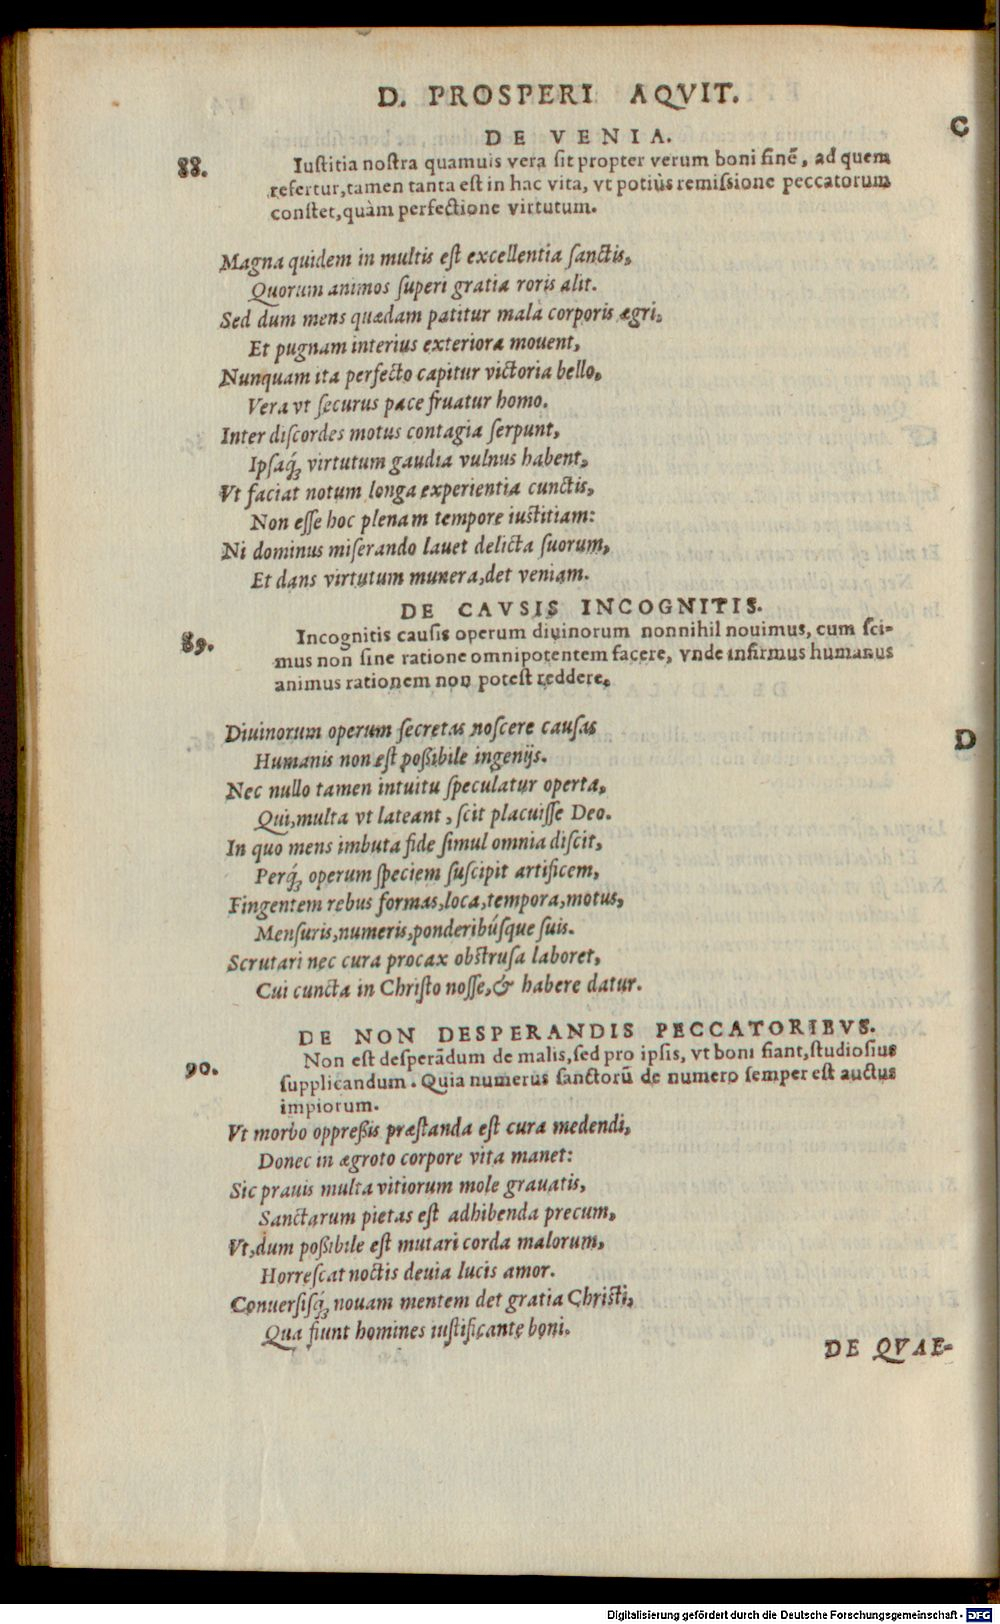 D. PROSPERI AQVIT.
C
DE VENIA.
88. Iuſtitia noſtra quamuis vera ſit propter verum boni finẽ, ad quem
refertur, tamen tanta eſt in hac vita, vt potiùs remiſsione peccatorum
conſtet, quàm perfectione virtutum.
Magna quidem in multis eſt excellentia ſanctis,
Quorum animos ſuperi gratia roris alit.
Sed dum mens quædam patitur mala corporis ægri,
Et pugnam interius exteriora mouent,
Nunquam ita perfecto capitur victoria bello,
Vera vt ſecurus pace fruatur homo.
Inter diſcordes motus contagia ſerpunt,
Ipſaq́; virtutum gaudia vulnus habent,
Vt faciat notum longa experientia cunctis,
Non eſſe hoc plenam tempore iuſtitiam:
Ni dominus miſerando lauet delicta ſuorum,
Et dans virtutum munera, det veniam.
DE CAVSIS INCOGNITIS.
89. Incognitis cauſis operum diuinorum nonnihil nouimus, cum ſci-
mus non ſine ratione omnipotentem facere, vnde infirmus humanus
animus rationem non poteſt reddere.
Diuinorum operum ſecretas noſcere cauſas
D
Humanis non eſt poßibile ingenijs.
Nec nullo tamen intuitu ſpeculatur operta,
Qui, multa vt lateant, ſcit placuiſſe Deo.
In quo mens imbuta fide ſimul omnia diſcit,
Perq́; operum ſpeciem ſuſcipit artificem,
Fingentem rebus formas, loca, tempora, motus,
Menſuris, numeris, ponderibúſque ſuis.
Scrutari nec cura procax obſtruſa laboret,
Cui cuncta in Chriſto noſſe, & habere datur.
DE NON DESPERANDIS PECCATORIBVS.
90. Non eſt deſperãdum de malis, ſed pro ipſis, vt boni fiant, ſtudioſius
ſupplicandum. Quia numerus ſanctorũ de numero ſemper eſt auctus
impiorum.
Vt morbo oppreßis præſtanda eſt cura medendi,
Donec in ægroto corpore vita manet:
Sic prauis multa vitiorum mole grauatis,
Sanctarum pietas eſt adhibenda precum,
Vt, dum poßibile eſt mutari corda malorum,
Horreſcat noctis deuia lucis amor.
Conuerſiſq́; nouam mentem det gratia Chriſti,
Qua fiunt homines iuſtificante boni.
DE QVAE-
Digitalisierung gefördert durch die Deutsche Forschungsgemeinschaft - DFG